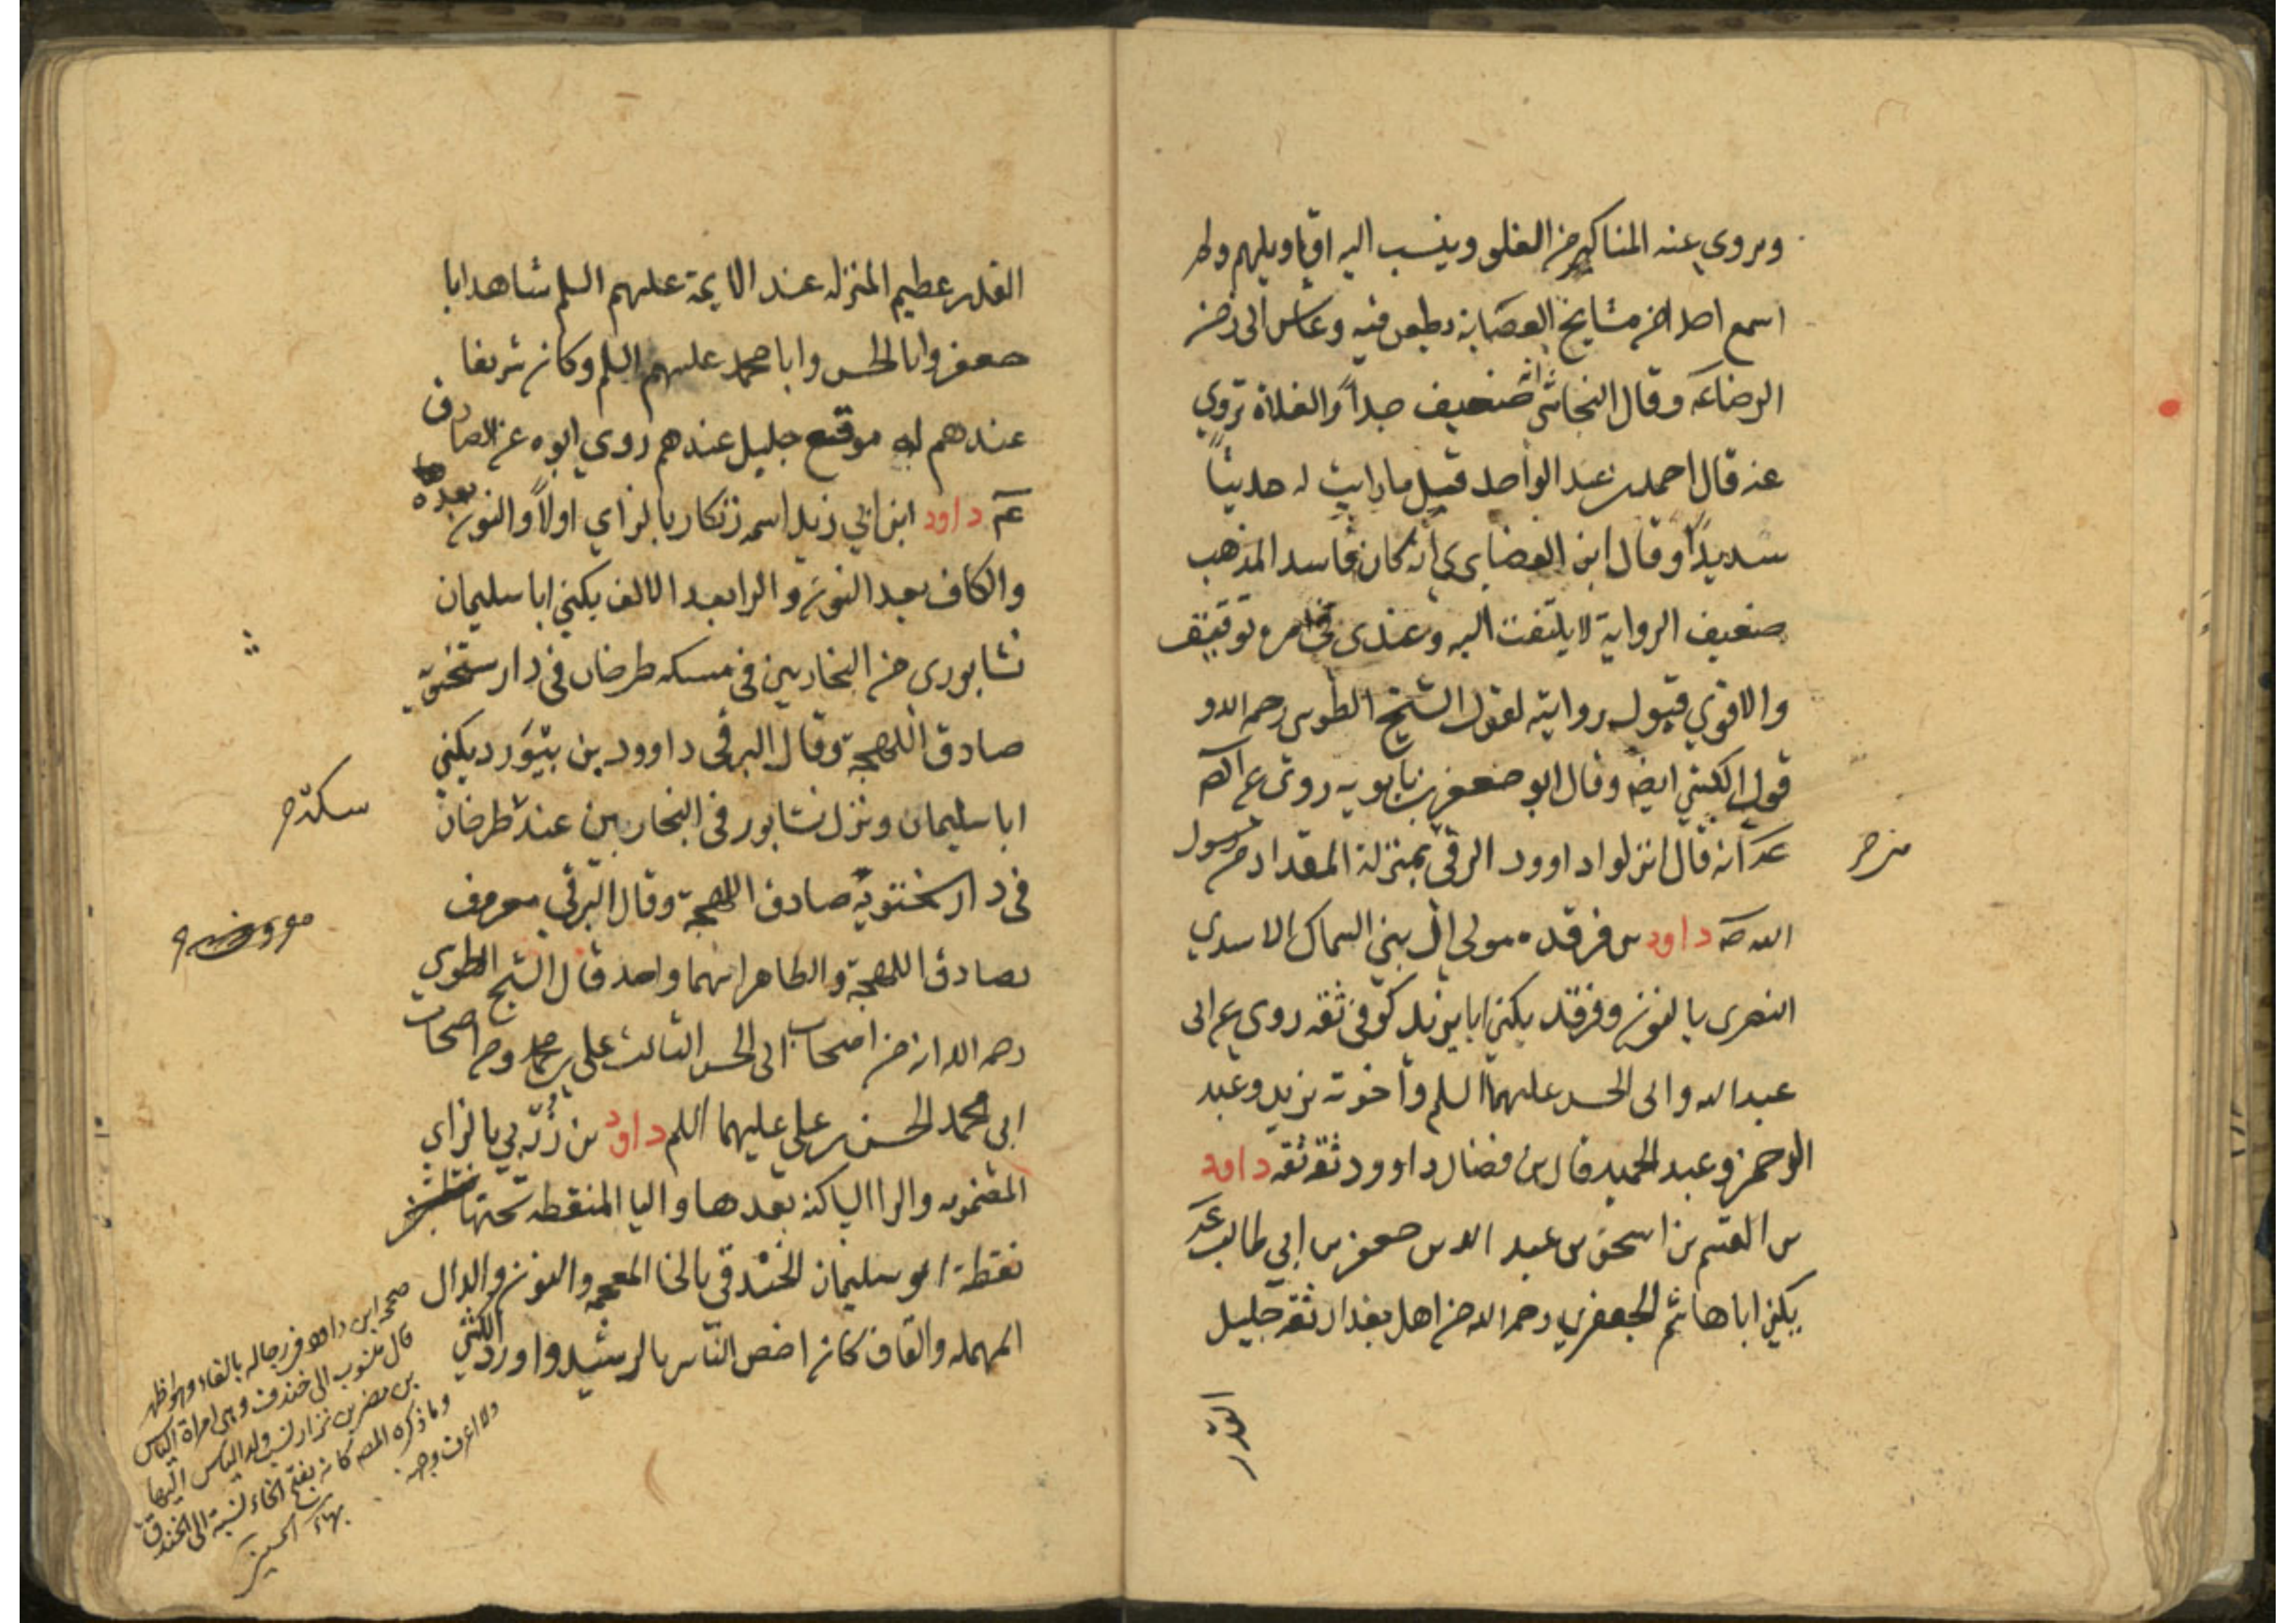 ويروي عنه المناكير من الغلو وينسب اليه اقاويلهم ولم
اسمع احدا من مشايخ العصابة يطعن فيه وعاش الى زمن
الرضا عه وقال النجاشي انه ضعيف جداً والغلاة تروي
عنه قال احمد بن عبد الواحد قيل ما رايت له حديثاً
سديداً وقال ابن الغضايري انه كان فاسد المذهب
ضعيف الرواية لا يلتفت اليه وعندى فى امره توقف
والاقوي قبول روايته لقول الشيخ الطوسى رحمه الله و
قول الكشي ايضً وقال ابو جعفر بن بابويه روى عن الصه
عه انه قال انزلوا داوود الرقى بمنزلة المقداد من رسول
من
الله صه داود بن فرقد مولى ال بني السماك الاسدي
النصرى بالنون وفرقد يكنى ابا يزيد كوفى ثقه روى عن ابى
عبد الله وابى الحسن عليهما السلم واخوته يزيد وعبد
الرحمن وعبد الحميد قال بن فضال داوود ثقة ثقه داود
بن القسم بن اسحق بن عبد الله بن جعفر بن ابي طالب عه
يكنى ابا هاشم الجعفري رحمه الله من اهل بغداد ثقه جليل
القدر
القدر عظيم المنزله عند الايمة عليهم السلم شاهد ابا
جعفر وابا الحسن وابا محمد عليهم السلم وكان شريفا
عندهم له موقع جليل عندهم روي ابوه عن الصادق
عم داود ابن ابي زيد اسمه زنكار بالزاي اولاً والنون بعدها
والكاف بعد النون والرا بعد الالف يكنى ابا سليمان
نشابورى من النجارين فى سكه طرخان فى دار سختويه
صادق اللهجة وقال البرقى داوود بن بنيورد يكني
ابا سليمان ونزل نشابور فى النجارين عند طرخان
سكة
فى دار سختويه صادق اللهجة وقال البرقي معروف
بصادق اللهجة والظاهر انهما واحد قال الشيخ الطوسي
رحمه الله انه من اصحاب ابى الحسن الثالث على بن محمد ومن اصحاب
ابي محمد الحسن بن علي عليهما السلم داود بن زُرْبي بالزاي
المضمومه والرا الساكنه بعدها واليا المنقطه تحتها
نقطة ابو سليمان الخندقي بالخا المعجمه والنون والدال
المهمله والقاف كان اخص الناس بالرشيد واورد الكشي
صححه ابن داود فى رجاله بالفاء وهو اظهر
قال منسوب الى خندف وهى امراة الياس
بن مضر بن نزار نسب ولد الياس اليها
وما ذكره المصه كانه بفتح الخاء نسبة الى الخندق
ولا اعرف وجهه